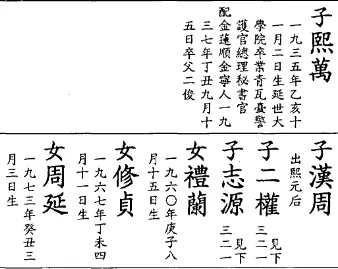 子熙萬
一九三五年乙亥十
一月二日生延世大
學院卒業靑瓦臺警
護官總理秘書官
配金蓮順金寧人一九
三七年丁丑九月十
五日卒父二俊
子漢周
出熙元后
子二權
見下
三二一
子志源
見下
三二一
女禮蘭
一九六〇年庚子八
月十五日生
女修貞
一九六七年丁未四
月十一日生
女周延
一九七三年癸丑三
月三日生